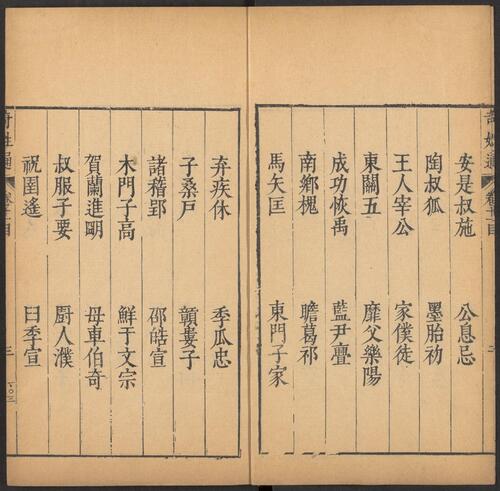 安是叔施　公息忌
陶叔狐　墨胎初
王人宰公　家僕徒
東關五　靡父樂陽
成功恢禹　藍尹亹
南鄉槐　瞻葛祁
馬矢匡　東門子家
弃疾休　季瓜忠
子桑戶　顓婁子
諸稽郢　邵皓宣
木門子高　鮮于文宗
賀蘭進明　母車伯奇
叔服子要　厨人濮
祝圉遙　臼季宣
三